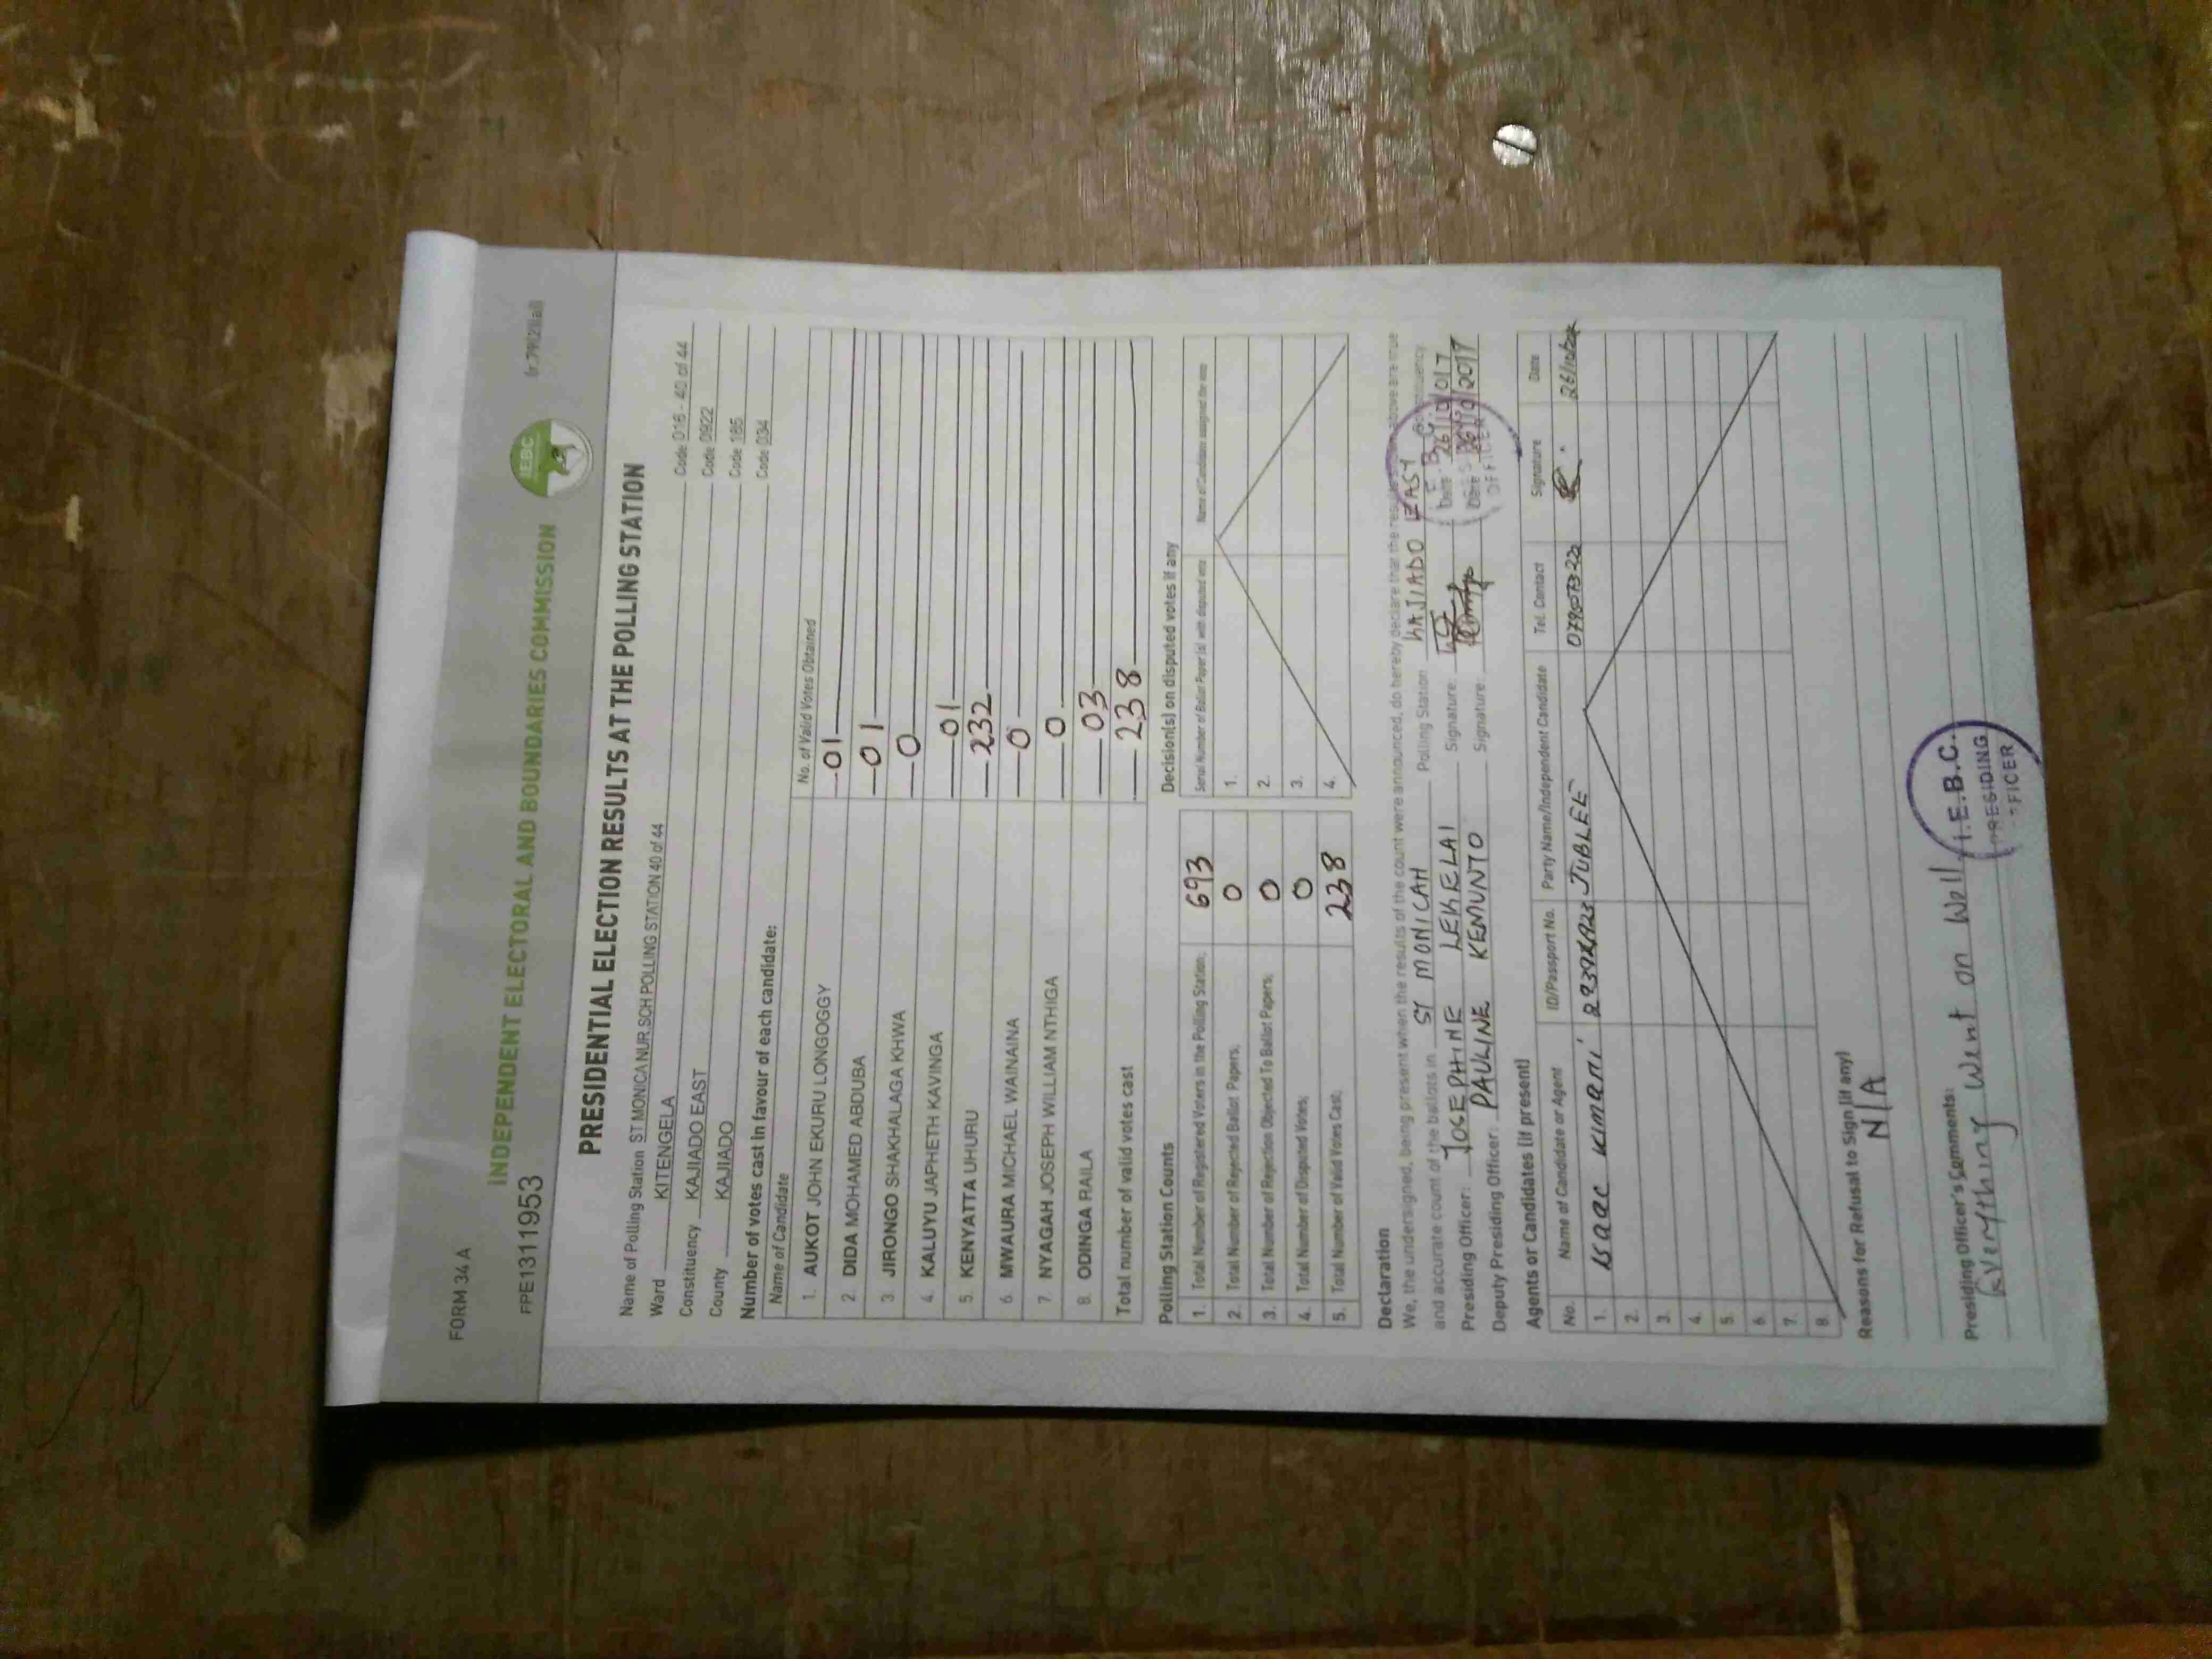 FORM 34 A
INDEPENDENT ELECTORAL AND BOUNDARIES COMMISSION
IEBC
FPE1311953
PRESIDENTIAL ELECTION RESULTS AT THE POLLING STATION
Name of Polling Station ST MONICA NUR.SCH POLLING STATION 40 of 44 Code 016 - 40 of 44
Ward KITENGELA Code 0922
Constituency KAJIADO EAST Code 185
County KAJIADO Code 034
Number of votes cast in favour of each candidate:
Name of Candidate No. of Valid Votes Obtained
1. AUKOT JOHN EKURU LONGOGGY 01
2. DIDA MOHAMED ABDUBA 01
3. JIRONGO SHAKHALAGA KHWA 0
4. KALUYU JAPHETH KAVINGA 01
5. KENYATTA UHURU 232
6. MWAURA MICHAEL WAINAINA 0
7. NYAGAH JOSEPH WILLIAM NTHIGA 0
8. ODINGA RAILA 03
Total number of valid votes cast 238
Polling Station Counts
1. Total Number of Registered Voters in the Polling Station; 693
2. Total Number of Rejected Ballot Papers; 0
3. Total Number of Rejection Objected To Ballot Papers; 0
4. Total Number of Disputed Votes; 0
5. Total Number of Valid Votes Cast; 238
Decision(s) on disputed votes if any
Serial Number of Ballot Paper (s) with disputed vote Name of Candidate assigned the vote
1.
2.
3.
4.
Declaration
We, the undersigned, being present when the results of the count were announced, do hereby declare that the results above are true
and accurate count of the ballots in ST MONICAH Polling Station KAJIADO EAST Constituency
Presiding Officer: JOSEPHINE LEKELAI Signature: Date 26/10/017
Deputy Presiding Officer: PAULINE KEMUNTO Signature: Date 26/10/2017
OFFICER
Agents or Candidates (if present)
No. Name of Candidate or Agent ID/Passport No. Party Name/Independent Candidate Tel. Contact Signature Date
1. Isaac Kimani JUBLEE
2.
3.
4.
5.
6.
7.
8.
Reasons for Refusal to Sign (if any)
N/A
Presiding Officer's Comments:
Everything Went on Well
I.E.B.C.
PRESIDING
OFFICER